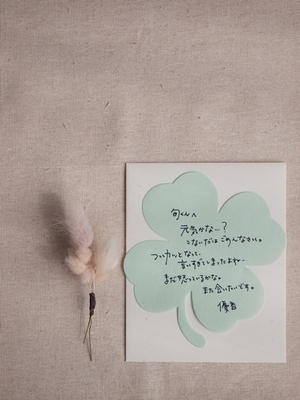 旬くんへ
元気かな…?
こないだはごめんなさい。
ついカッとなって、
言いすぎてしまったよね…
まだ怒っているかな。
また会いたいです。
優香